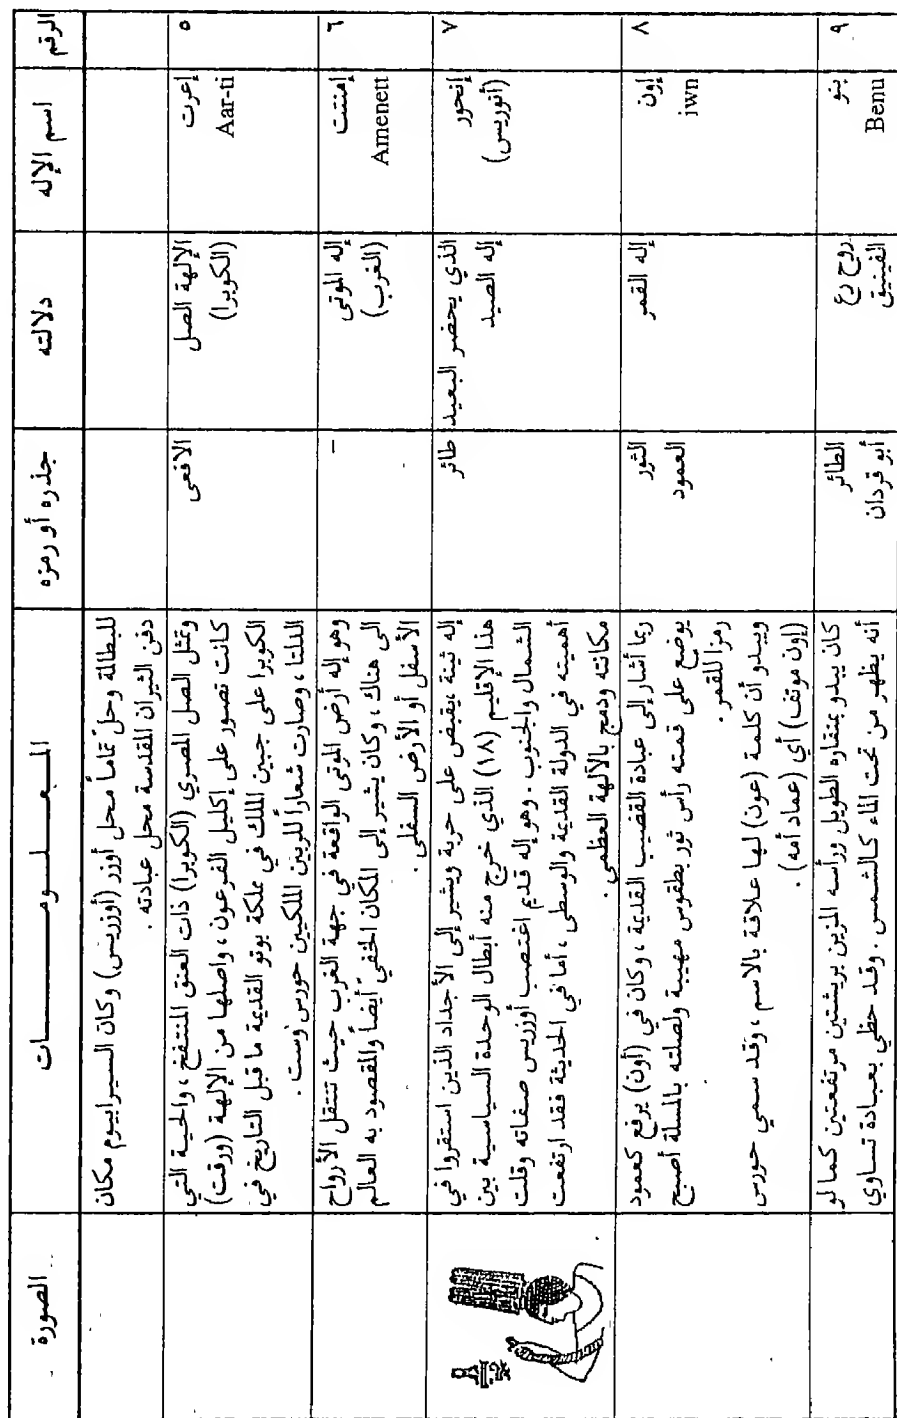 الرقم
اسم الإله
دلالته
جذره أو رمزه
المـعـلـومـــات
الصورة
للبطالة وحل تماماً محل أوزر (أوزريس) وكان السيرابيوم مكان
دفن الثيران المقدسة محل عبادته .
٥
إعرت
Aar-ti
الإلهة الصل
(الكوبرا)
الافعى
وتمثل الصل المصري (الكوبرا) ذات العنق المنتفخ ، والحية التي
كانت تصور على إكليل الفرعون ، واصلها من الإلهة (ورقت)
الكوبرا على جبين الملك في مملكة بوتو القديمة ما قبل التاريخ في
الدلتا ، وصارت شعاراً للربين الملكيين حورس وست .
٦
إمنتت
Amenett
إله الموتى
(الغرب)
-
وهو إله أرض الموتى الواقعة في جهة الغرب حيث تنتقل الأرواح
الى هناك ، وكان يشير إلى المكان الخفي أيضاً والمقصود به العالم
الأسفل أو الأرض السفلى .
٧
إنحور
(أنوريس)
الذي يحضر البعيد
إله الصيد
طائر
إله ثينة ، يقبض على حربة ويشير إلى الأجداد الذين استقروا في
هذا الإقليم (١٨) الذي خرج منه أبطال الوحدة السياسية بين
الشمال والجنوب . وهو إله قديم اغتصب أوزريس صفاته وقلت
أهميته في الدولة القديمة والوسطى ، أما في الحديثة فقد ارتفعت
مكانته ودمج بالآلهة العظمى .
٨
إون
iwn
إله القمر
الثور
العمود
ربما أشار إلى عبادة القضيب القديمة ، وكان في (أون) يرفع كعمود
يوضع على قمته رأس ثور بطقوس مهيبة ولصلته بالمسلة أصبح
رمزا للقمر .
ويبدو أن كلمة (عون) لها علاقة بالاسم ، وقد سمي حورس
(إون موتف) أي (عماد أمه) .
٩
بنو
Benu
روح رع
الفينيق
الطائر
أبو قردان
كان يبدو بمنقاره الطويل ورأسه المزين بريشتين مرتفعتين كما لو
أنه يظهر من تحت الماء كالشمس . وقد حظي بعبادة تساوي